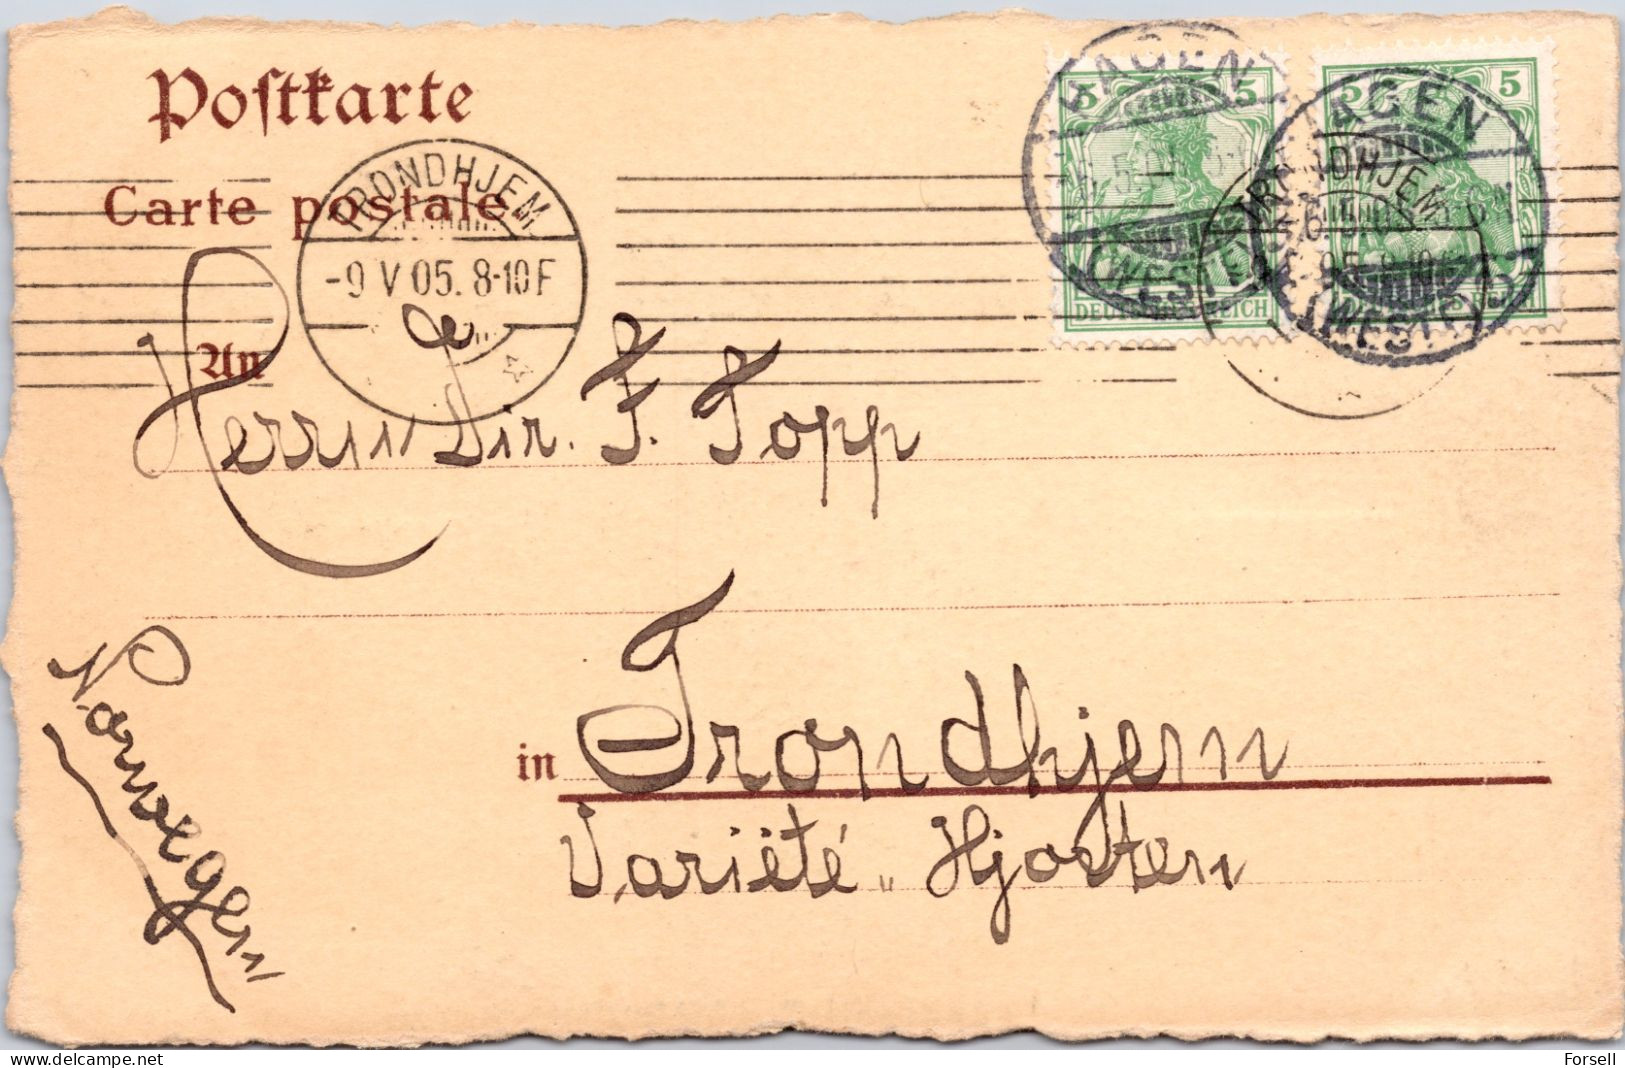 Postkarte
Carte postale
An
Herrn Dir. F. Topp
in Trondhjem
Variété „Hjorten
Norwegen
TRONDHJEM
-9 V 05. 8-10 F
HAGEN
(WESTF)
5 5
DEUTSCHES REICH
HAGEN
(WESTF)
5 5
REICH
TRONDHJEM
delcampe.net
Forsell